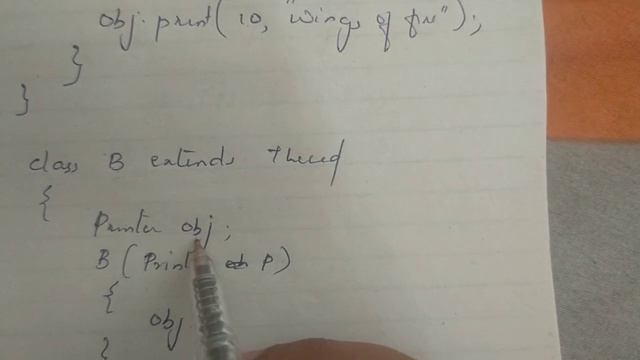 obj.print(10, "wings of fire");
}
}
class B extends Thread
{
Printer obj;
B(Print P)
{
obj
}